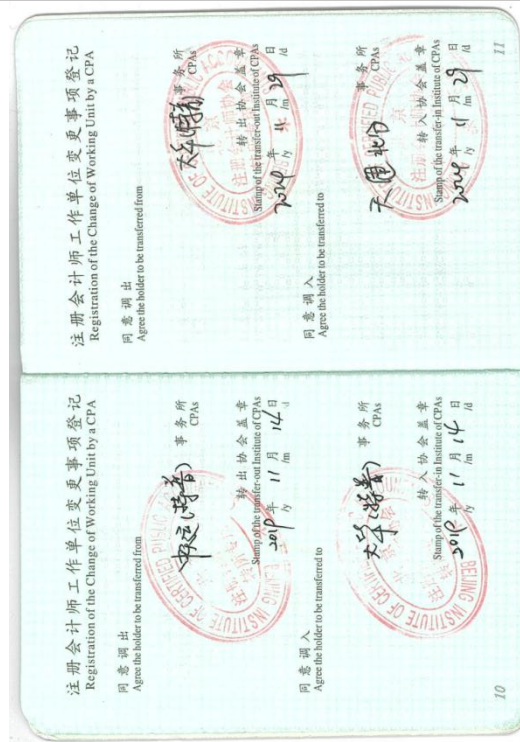 注册会计师工作单位变更事项登记
Registration of the Change of Working Unit by a CPA
同意调出
Agree the holder to be transferred from
事务所
CPAs
转出协会盖章
Stamp of the transfer-out Institute of CPAs
2019 年 11 月 14 日
/y /m /d
同意调入
Agree the holder to be transferred to
(特普) 事务所
CPAs
转入协会盖章
Stamp of the transfer-in Institute of CPAs
2019 年 11 月 14 日
/y /m /d
BEIJING INSTITUTE OF CERTIFIED
10
注册会计师工作单位变更事项登记
Registration of the Change of Working Unit by a CPA
同意调出
Agree the holder to be transferred from
事务所
CPAs
转出协会盖章
Stamp of the transfer-out Institute of CPAs
年 月 29 日
/y /m /d
同意调入
Agree the holder to be transferred to
事务所
CPAs
转入协会盖章
Stamp of the transfer-in Institute of CPAs
年 11 月 29 日
/y /m /d
11